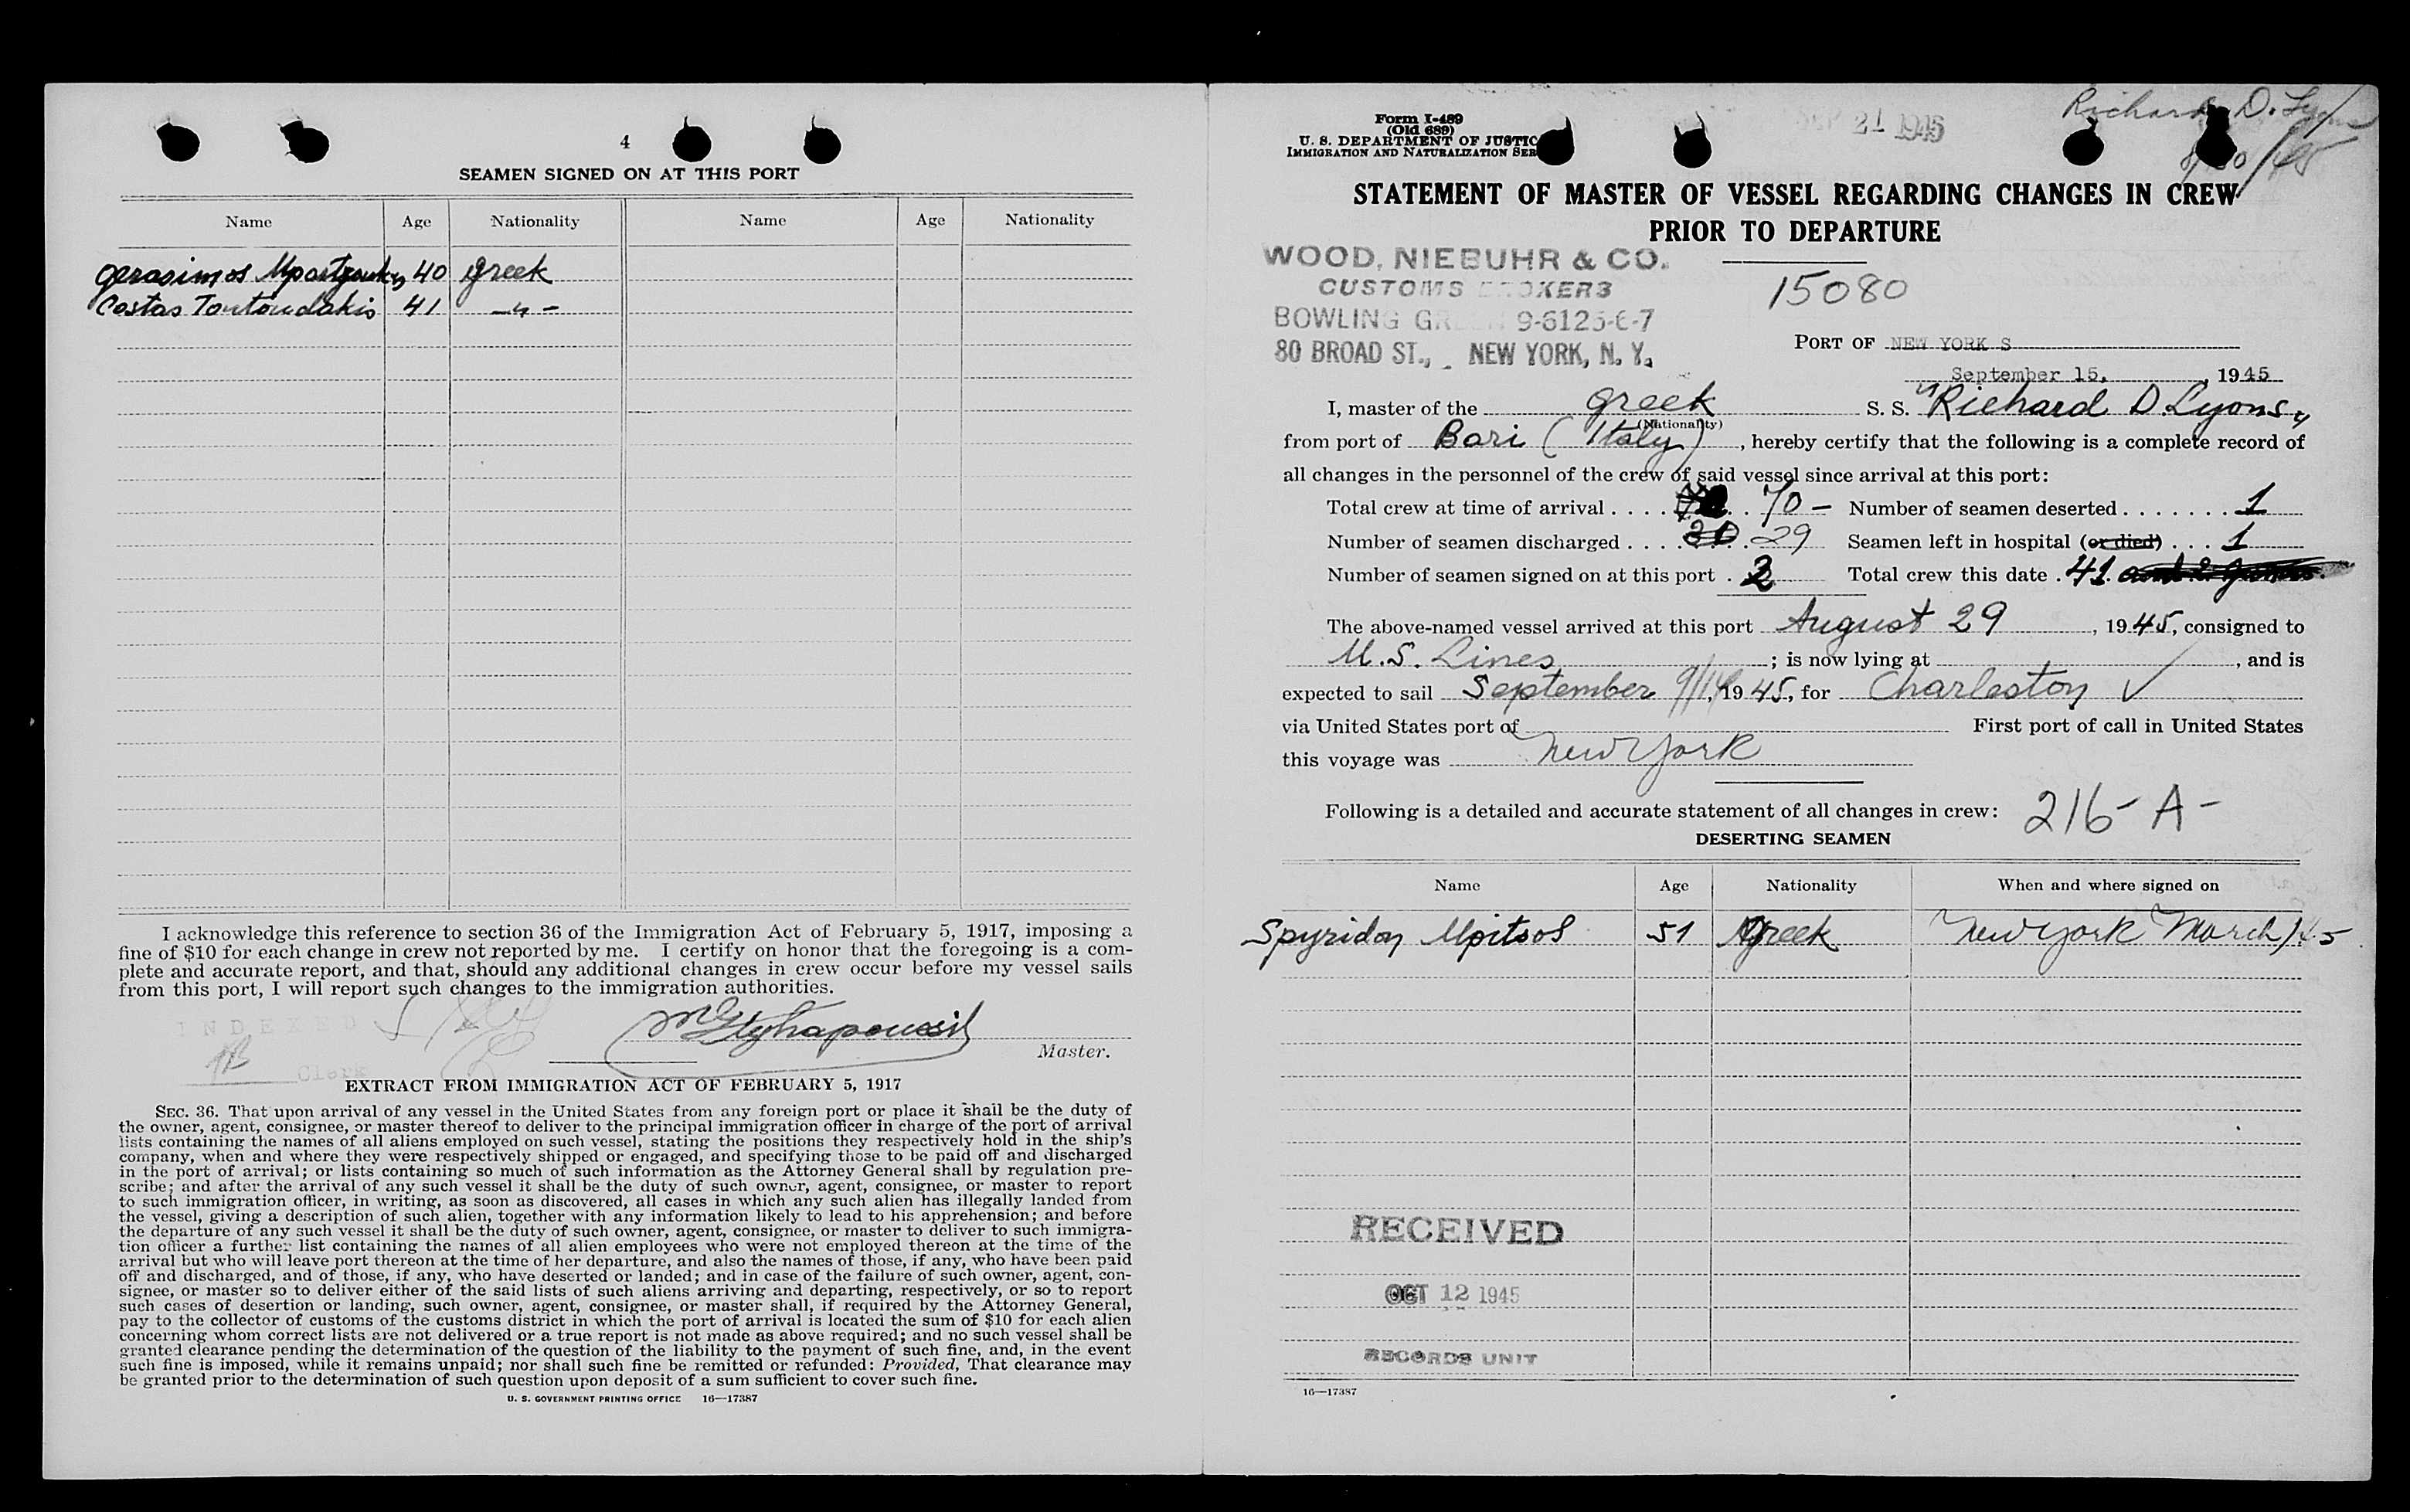 4
SEAMEN SIGNED ON AT THIS PORT
Name Age Nationality Name Age Nationality
Gerasimos 40 Greek
Costas Toutoudakis 41 -"-
I acknowledge this reference to section 36 of the Immigration Act of February 5, 1917, imposing a
fine of $10 for each change in crew not reported by me. I certify on honor that the foregoing is a com-
plete and accurate report, and that, should any additional changes in crew occur before my vessel sails
from this port, I will report such changes to the immigration authorities.
INDEXED
Master.
Clerk
EXTRACT FROM IMMIGRATION ACT OF FEBRUARY 5, 1917
SEC. 36. That upon arrival of any vessel in the United States from any foreign port or place it shall be the duty of
the owner, agent, consignee, or master thereof to deliver to the principal immigration officer in charge of the port of arrival
lists containing the names of all aliens employed on such vessel, stating the positions they respectively hold in the ship's
company, when and where they were respectively shipped or engaged, and specifying those to be paid off and discharged
in the port of arrival; or lists containing so much of such information as the Attorney General shall by regulation pre-
scribe; and after the arrival of any such vessel it shall be the duty of such owner, agent, consignee, or master to report
to such immigration officer, in writing, as soon as discovered, all cases in which any such alien has illegally landed from
the vessel, giving a description of such alien, together with any information likely to lead to his apprehension; and before
the departure of any such vessel it shall be the duty of such owner, agent, consignee, or master to deliver to such immigra-
tion officer a further list containing the names of all alien employees who were not employed thereon at the time of the
arrival but who will leave port thereon at the time of her departure, and also the names of those, if any, who have been paid
off and discharged, and of those, if any, who have deserted or landed; and in case of the failure of such owner, agent, con-
signee, or master so to deliver either of the said lists of such aliens arriving and departing, respectively, or so to report
such cases of desertion or landing, such owner, agent, consignee, or master shall, if required by the Attorney General,
pay to the collector of customs of the customs district in which the port of arrival is located the sum of $10 for each alien
concerning whom correct lists are not delivered or a true report is not made as above required; and no such vessel shall be
granted clearance pending the determination of the question of the liability to the payment of such fine, and, in the event
such fine is imposed, while it remains unpaid; nor shall such fine be remitted or refunded: Provided, That clearance may
be granted prior to the determination of such question upon deposit of a sum sufficient to cover such fine.
U. S. GOVERNMENT PRINTING OFFICE 16—17387
Form I-489
(Old 689)
U. S. DEPARTMENT OF JUSTIC
IMMIGRATION AND NATURALIZATION SER
21 1945
Richard D. Lyons
STATEMENT OF MASTER OF VESSEL REGARDING CHANGES IN CREW
PRIOR TO DEPARTURE
WOOD, NIEBUHR & CO.
CUSTOMS BROKERS
BOWLING GREEN 9-6125-6-7
80 BROAD ST., NEW YORK, N. Y.
15080
PORT OF NEW YORK S
September 15, 1945
I, master of the Greek S. S. "Richard D. Lyons"
(Nationality)
from port of Bari (Italy), hereby certify that the following is a complete record of
all changes in the personnel of the crew of said vessel since arrival at this port:
Total crew at time of arrival .... 70 - Number of seamen deserted ....... 1
Number of seamen discharged .... 30 29 Seamen left in hospital (or died) ... 1
Number of seamen signed on at this port . 2 Total crew this date . 41
The above-named vessel arrived at this port August 29, 1945, consigned to
U.S. Lines; is now lying at , and is
expected to sail September 9/14, 1945, for Charleston ✓
via United States port of First port of call in United States
this voyage was New York
Following is a detailed and accurate statement of all changes in crew: 216-A-
DESERTING SEAMEN
Name Age Nationality When and where signed on
Spyridon Mpitsos 51 Greek New York March/45
RECEIVED
OCT 12 1945
RECORDS UNIT
16—17387